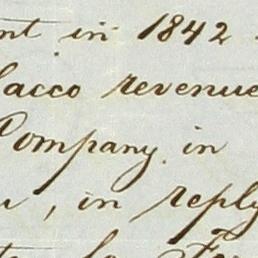 nt in 1842
bacco revenue
Company in
, in reply
to